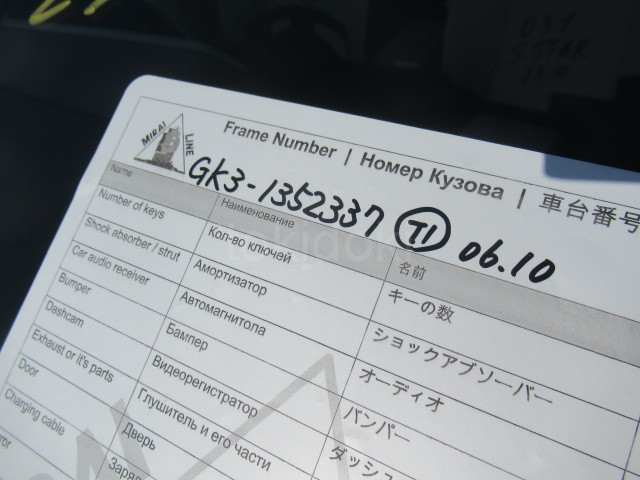 MIRAI LINE
Frame Number | Номер Кузова | 車台番号
GK3-1352337 TI 06.10
Name Наименование 名前
Number of keys Кол-во ключей キーの数
Shock absorber / strut Амортизатор ショックアブソーバー
Car audio receiver Автомагнитола オーディオ
Bumper Бампер バンパー
Dashcam Видеорегистратор ダッシ
Exhaust or it's parts Глушитель и его части
Door Дверь
Charging cable Заряд